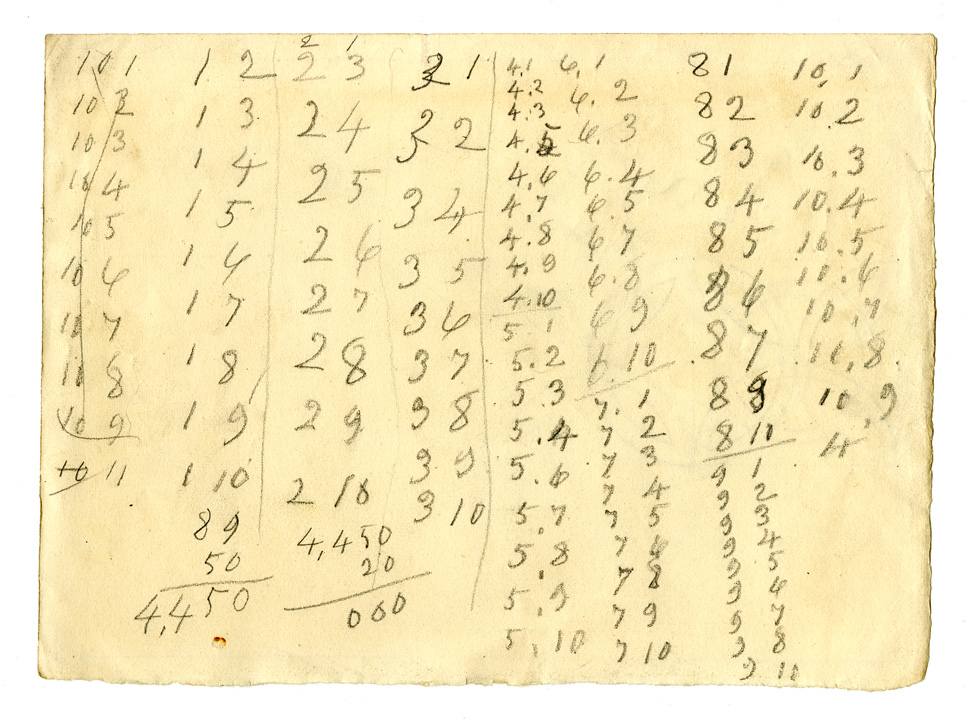 10 1
10 2
10 3
10 4
10 5
10 6
10 7
10 8
10 9
10 11
1 2
1 3
1 4
1 5
1 6
1 7
1 8
1 9
1 10
89
50
4,450
2 1
2 3
2 4
2 5
2 6
2 7
2 8
2 9
2 10
4,450
20
000
3 1
3 2
3 4
3 5
3 6
3 7
3 8
3 9
3 10
4.1
4.2
4.3
4.5
4.6
4.7
4.8
4.9
4.10
5.1
5.2
5.3
5.4
5.6
5.7
5.8
5.9
5.10
6.1
6.2
6.3
6.4
6.5
6 7
6.8
6 9
6.10
7.1
7 2
7 3
7 4
7 5
7 6
7 8
7 9
7 10
8 1
8 2
8 3
8 4
8 5
8 6
8 7
8 9
8 10
9 1
9 2
9 3
9 4
9 5
9 6
9 7
9 8
9 10
10,1
10.2
10.3
10.4
10.5
10.6
10,7
10,8
10,9
4